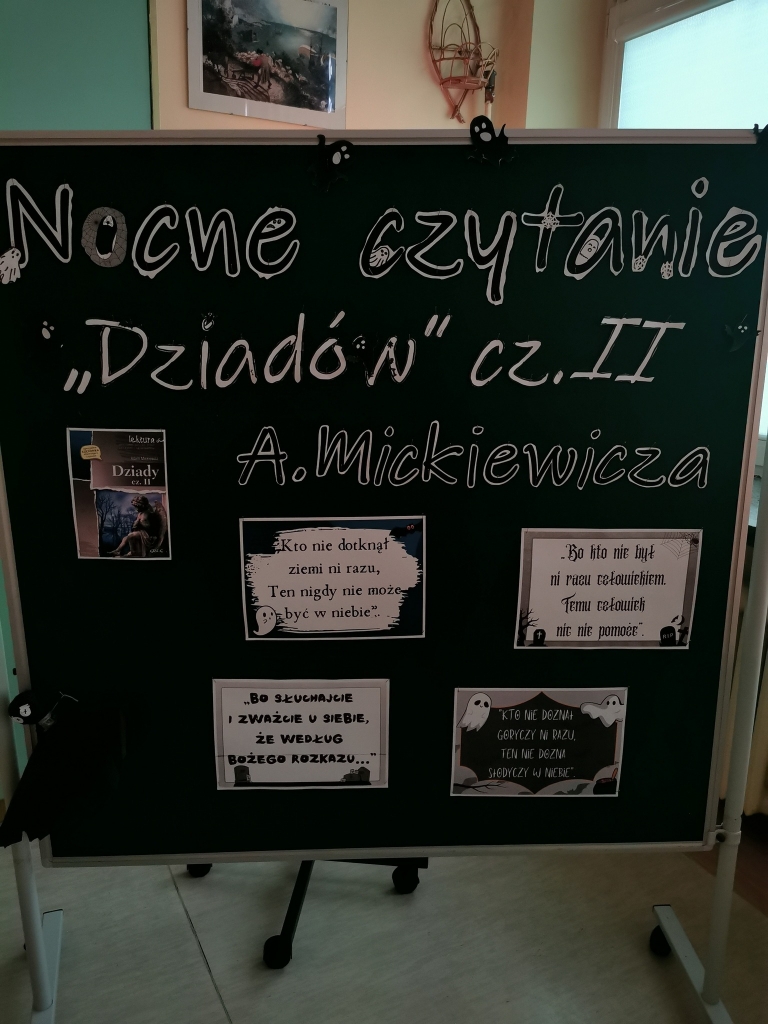 Nocne czytanie
„Dziadów” cz. II
A. Mickiewicza
lektura
Dziady
cz. II
„Kto nie dotknął
ziemi ni razu,
Ten nigdy nie może
być w niebie”.
„Bo kto nie był
ni razu człowiekiem.
Temu człowiek
nic nie pomoże”.
RIP
„BO SŁUCHAJCIE
I ZWAŻCIE U SIEBIE,
ŻE WEDŁUG
BOŻEGO ROZKAZU..."
"KTO NIE DOZNAŁ
GORYCZY NI RAZU,
TEN NIE DOZNA
SŁODYCZY W NIEBIE".